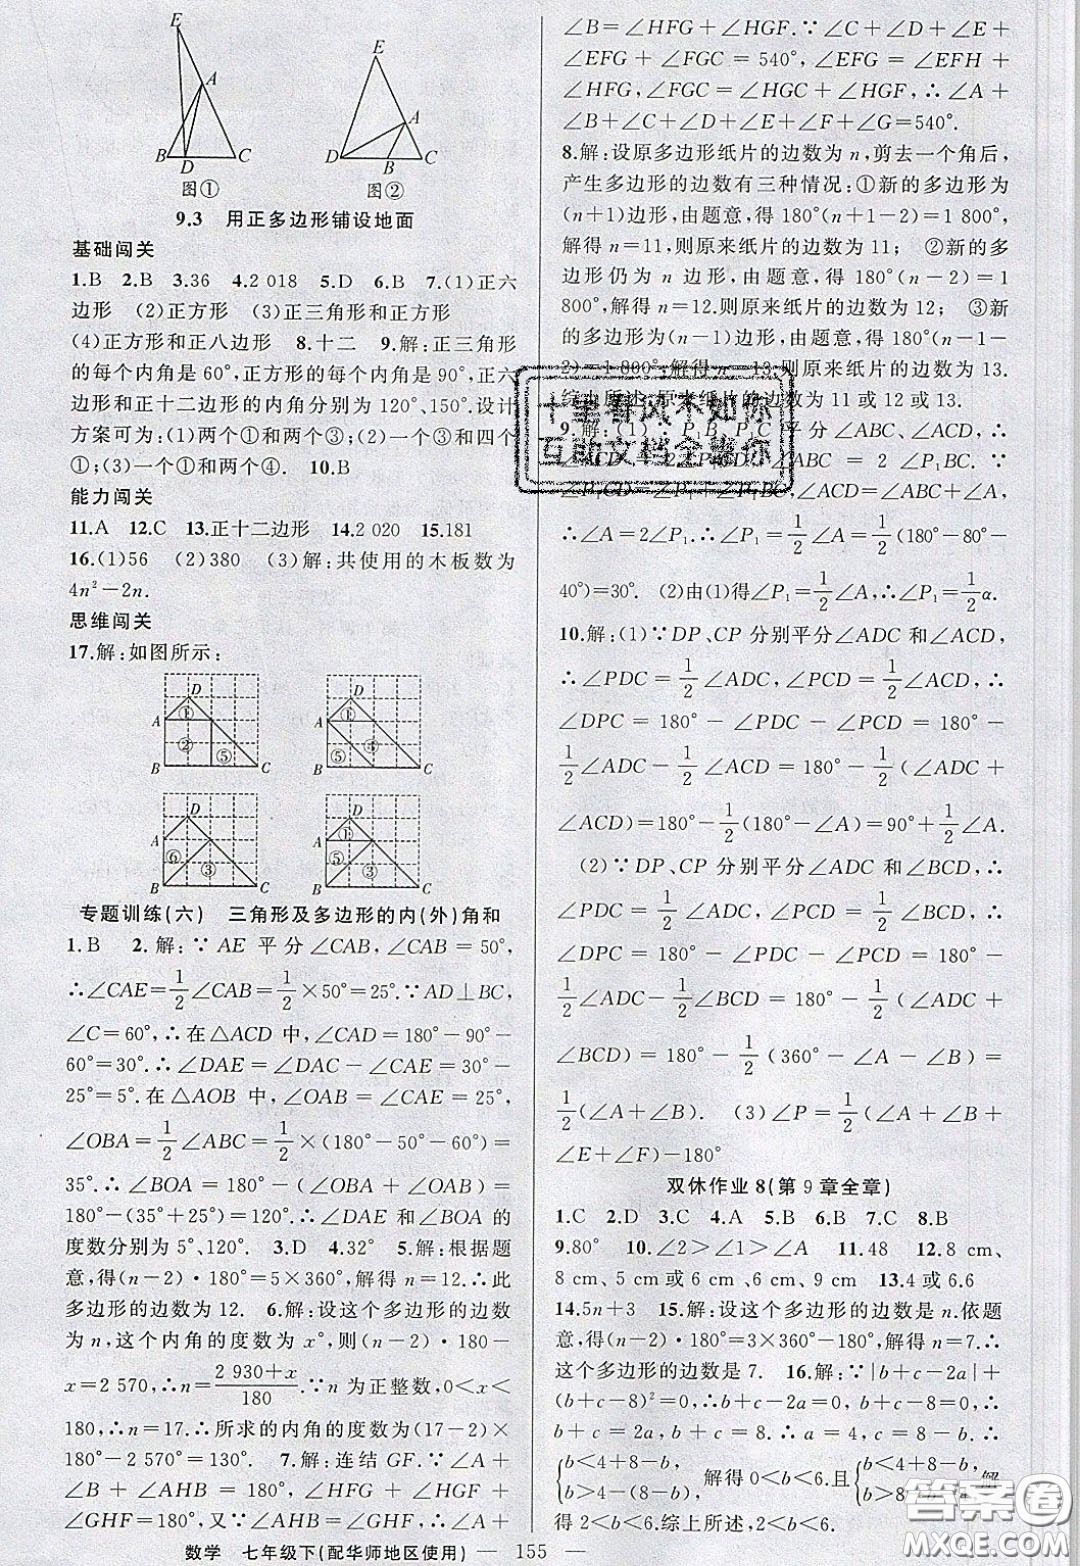 E
A
B D C
图①
E
A
D B C
图②
9.3 用正多边形铺设地面
基础闯关
1.B 2.B 3.36 4.2 018 5.D 6.B 7.(1)正六
边形 (2)正方形 (3)正三角形和正方形
(4)正方形和正八边形 8.十二 9.解:正三角形
的每个内角是60°,正方形的每个内角是90°,正六
边形和正十二边形的内角分别为120°、150°.设计
方案可为:(1)两个①和两个③;(2)一个③和四个
①;(3)一个①和两个④. 10.B
能力闯关
11.A 12.C 13.正十二边形 14.2 020 15.181
16.(1)56 (2)380 (3)解:共使用的木板数为
4n²-2n.
思维闯关
17.解:如图所示:
D
A ①
②
⑤
B C
D
A ①
④
⑤
B C
D
A
⑥
③
B C
D
A ①
⑤
③
B C
专题训练(六) 三角形及多边形的内(外)角和
1.B 2.解:∵AE 平分∠CAB,∠CAB=50°,
∴∠CAE=1/2∠CAB=1/2×50°=25°.∵AD⊥BC,
∠C=60°,∴在△ACD 中,∠CAD=180°-90°-
60°=30°.∴∠DAE=∠DAC-∠CAE=30°-
25°=5°.在△AOB 中,∠OAB=∠CAE=25°,
∠OBA=1/2∠ABC=1/2×(180°-50°-60°)=
35°.∴∠BOA=180°-(∠OAB+∠OBA)=180°
-(35°+25°)=120°.∴∠DAE 和∠BOA 的
度数分别为5°、120°. 3.D 4.32° 5.解:根据题
意,得(n-2)·180°=5×360°,解得n=12.∴此
多边形的边数为12. 6.解:设这个多边形的边数
为n,这个内角的度数为x°,则(n-2)·180-
x=2 570,n=(2 930+x)/180.∵n为正整数,0<x<
180,∴n=17.∴所求的内角的度数为(17-2)×
180°-2 570°=130°. 7.解:连结GF.∵∠A+
∠B+∠AHB=180°,∠HFG+∠HGF+
∠GHF=180°,又∵∠AHB=∠GHF,∴∠A+
∠B=∠HFG+∠HGF.∵∠C+∠D+∠E+
∠EFG+∠FGC=540°,∠EFG=∠EFH+
∠HFG,∠FGC=∠HGC+∠HGF,∴∠A+
∠B+∠C+∠D+∠E+∠F+∠G=540°.
8.解:设原多边形纸片的边数为n,剪去一个角后,
产生多边形的边数有三种情况:①新的多边形为
(n+1)边形,由题意,得180°(n+1-2)=1 800°,
解得n=11,则原来纸片的边数为11; ②新的多
边形仍为n边形,由题意,得180°(n-2)=1
800°,解得n=12.则原来纸片的边数为12; ③新
的多边形为(n-1)边形,由题意,得180°(n-1-
2)=1 800°,解得n=13.则原来纸片的边数为13.
综上所述,原来纸片的边数为11或12或13.
9.解:(1)∵P₁B、P₁C平分∠ABC、∠ACD,
∠ABC=2∠P₁BC.∵
∠P₁CD=∠P₁+∠P₁BC,∠ACD=∠ABC+∠A,
∴∠A=2∠P₁.∴∠P₁=1/2∠A=1/2(180°-80°-
40°)=30°. (2)由(1)得∠P₁=1/2∠A,∴∠P₁=1/2α.
10.解:(1)∵DP、CP 分别平分∠ADC和∠ACD,
∴∠PDC=1/2∠ADC,∠PCD=1/2∠ACD.∴
∠DPC=180°-∠PDC-∠PCD=180°-
1/2∠ADC-1/2∠ACD=180°-1/2(∠ADC+
∠ACD)=180°-1/2(180°-∠A)=90°+1/2∠A.
(2)∵DP、CP 分别平分∠ADC和∠BCD,∴
∠PDC=1/2∠ADC,∠PCD=1/2∠BCD.∴
∠DPC=180°-∠PDC-∠PCD=180°-
1/2∠ADC-1/2∠BCD=180°-1/2(∠ADC+
∠BCD)=180°-1/2(360°-∠A-∠B)=
1/2(∠A+∠B). (3)∠P=1/2(∠A+∠B+
∠E+∠F)-180°
双休作业8(第9章全章)
1.C 2.D 3.C 4.A 5.B 6.B 7.C 8.B
9.80° 10.∠2>∠1>∠A 11.48 12.8 cm、
8 cm、5 cm或6 cm、6 cm、9 cm 13.4或6.6
14.5n+3 15.解:设这个多边形的边数是n.依题
意,得(n-2)·180°=3×360°-180°,解得n=7.∴
这个多边形的边数是7. 16.解:∵|b+c-2a|+
(b+c-8)²=0,∴b+c-2a=0,b+c-8=0.∴
b+c=2a,b+c=8.∴2a=8.∴a=4.∴
{b<4+8-b, b>4-(8-b), 解得0<b<6.且{b<4+8-b, b>8-b-4, 解
得2<b<6.综上所述,2<b<6.
数学 七年级下(配华师地区使用) — 155 —
十里春风不如你
互助文档全靠你
答案圈
MXQE.COM